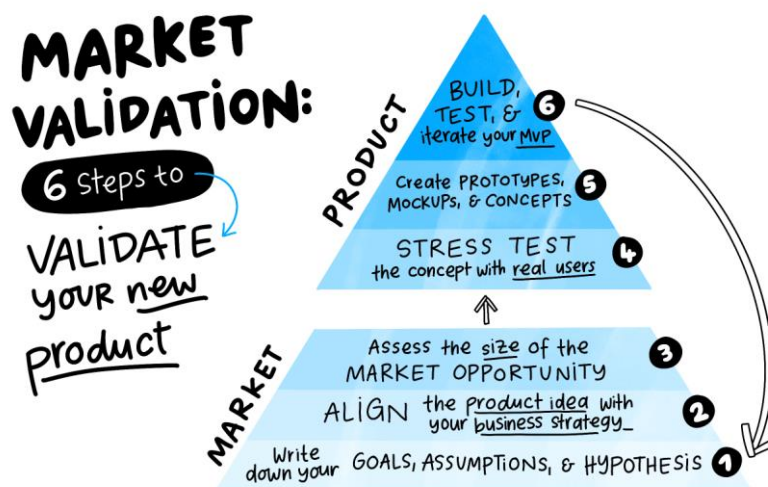 MARKET
VALIDATION:
6 Steps to
VALIDATE
your new
product
PRODUCT
BUILD,
TEST, &
iterate your MVP
6
Create PROTOTYPES,
MOCKUPS, & CONCEPTS
5
STRESS TEST
the concept with real users
4
MARKET
Assess the size of the
MARKET OPPORTUNITY
3
ALIGN the product idea with
your business strategy_
2
Write
down your GOALS, ASSUMPTIONS, & HYPOTHESIS
1